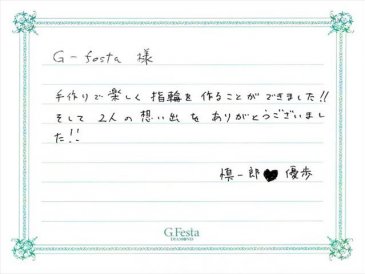 G-festa 様
手作りで楽しく指輪を作ることができました!!
そして2人の想い出をありがとうございまし
た!!
慎一郎♥優歩
G.Festa
DIAMOND